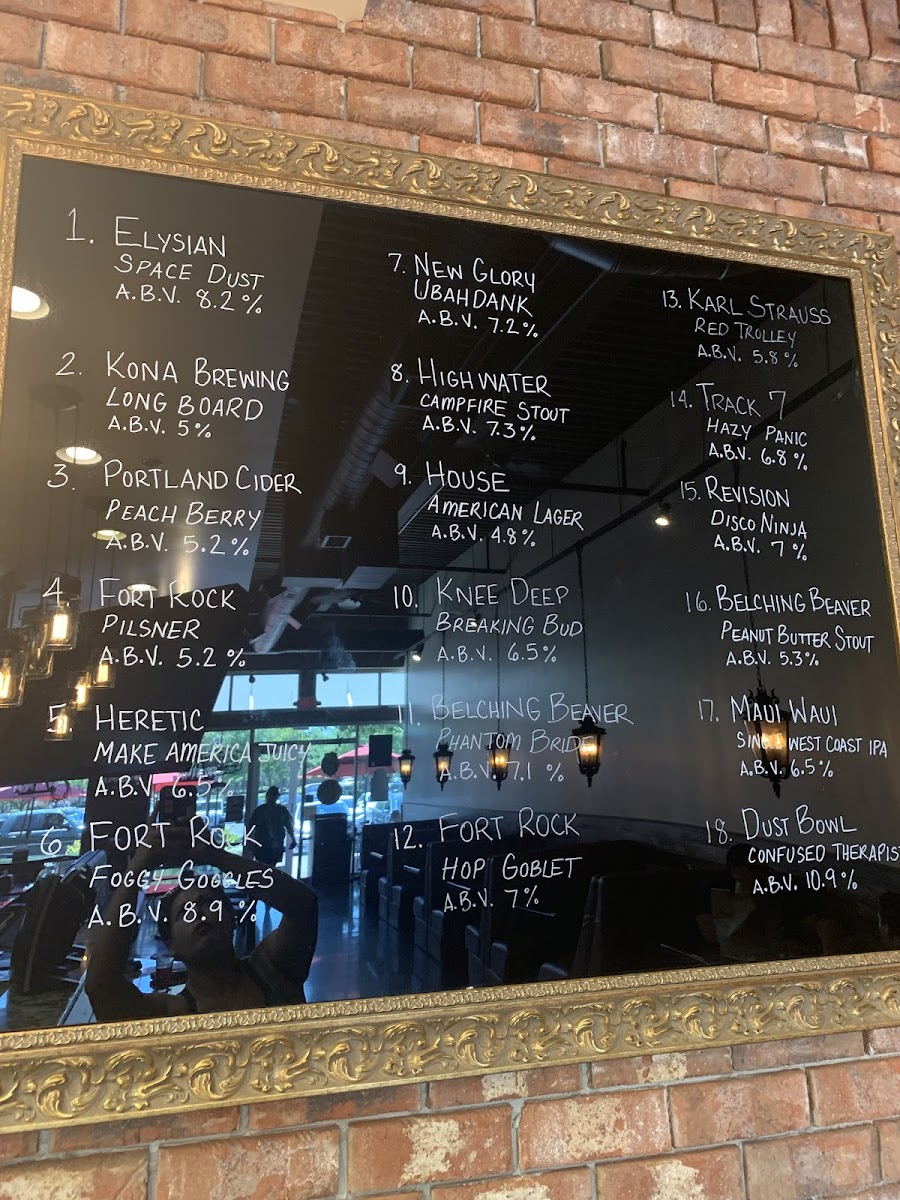 1. ELYSIAN
SPACE DUST
A.B.V. 8.2%
2. KONA BREWING
LONG BOARD
A.B.V. 5%
3. PORTLAND CIDER
PEACH BERRY
A.B.V. 5.2%
4. FORT ROCK
PILSNER
A.B.V. 5.2%
5. HERETIC
MAKE AMERICA JUICY
A.B.V. 6.5%
6. FORT ROCK
FOGGY GOGGLES
A.B.V. 8.9%
7. NEW GLORY
UBAHDANK
A.B.V. 7.2%
8. HIGH WATER
CAMPFIRE STOUT
A.B.V. 7.3%
9. HOUSE
AMERICAN LAGER
A.B.V. 4.8%
10. KNEE DEEP
BREAKING BUD
A.B.V. 6.5%
11. BELCHING BEAVER
PHANTOM BRIDE
A.B.V. 7.1 %
12. FORT ROCK
HOP GOBLET
A.B.V. 7%
13. KARL STRAUSS
RED TROLLEY
A.B.V. 5.8%
14. TRACK 7
HAZY PANIC
A.B.V. 6.8%
15. REVISION
DISCO NINJA
A.B.V. 7%
16. BELCHING BEAVER
PEANUT BUTTER STOUT
A.B.V. 5.3%
17. MAUI WAUI
SINGLE WEST COAST IPA
A.B.V. 6.5%
18. DUST BOWL
CONFUSED THERAPIST
A.B.V. 10.9%